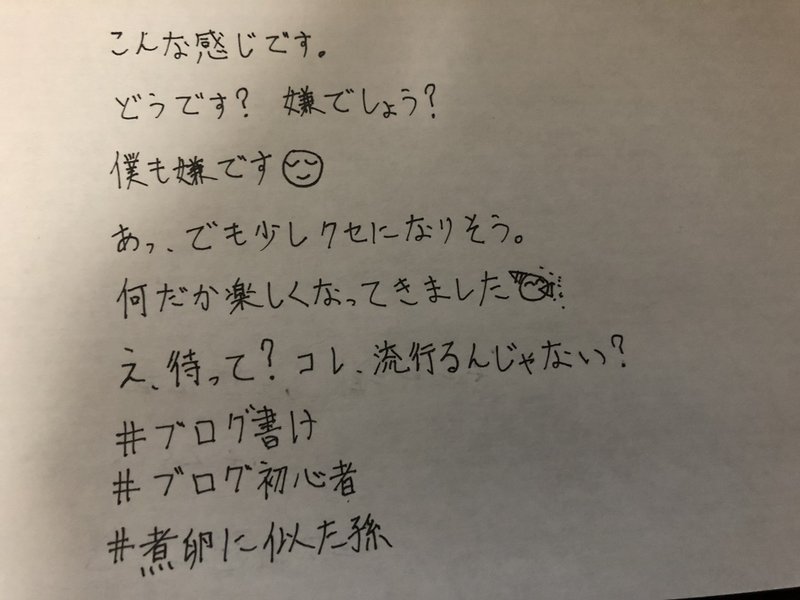 こんな感じです。
どうです? 嫌でしょう?
僕も嫌です
あっ、でも少しクセになりそう。
何だか楽しくなってきました
え、待って? コレ、流行るんじゃない?
#ブログ書け
#ブログ初心者
#煮卵に似た孫